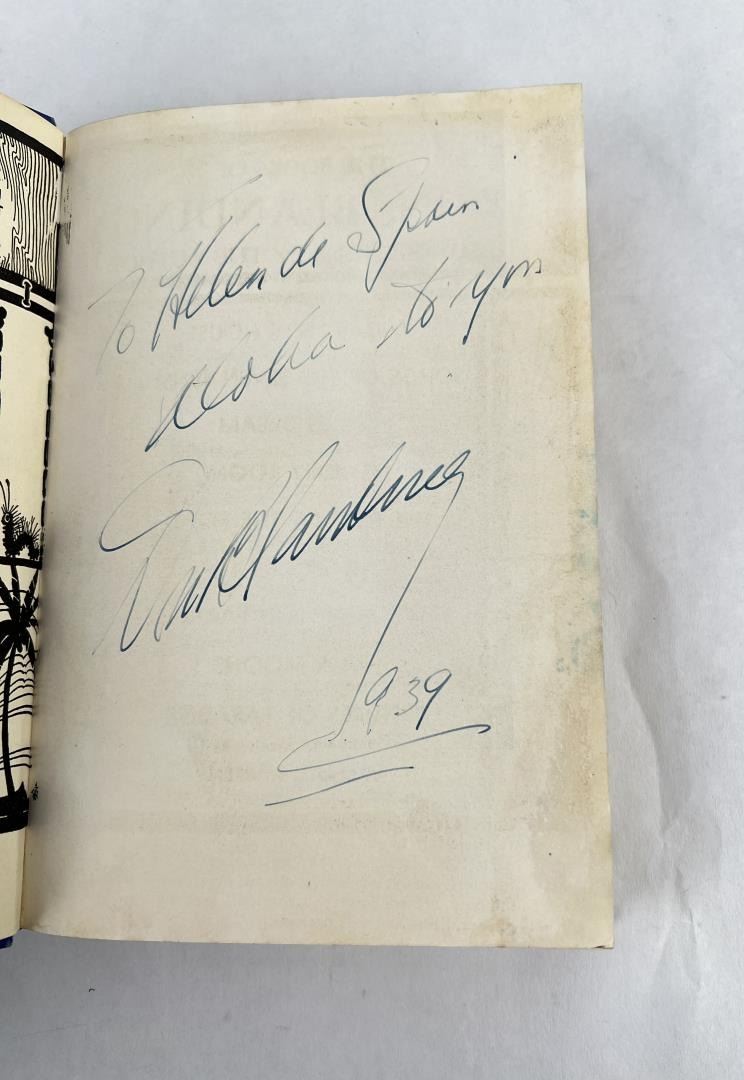 To Helen de Spain
Aloha to you
Don Blanding
1939